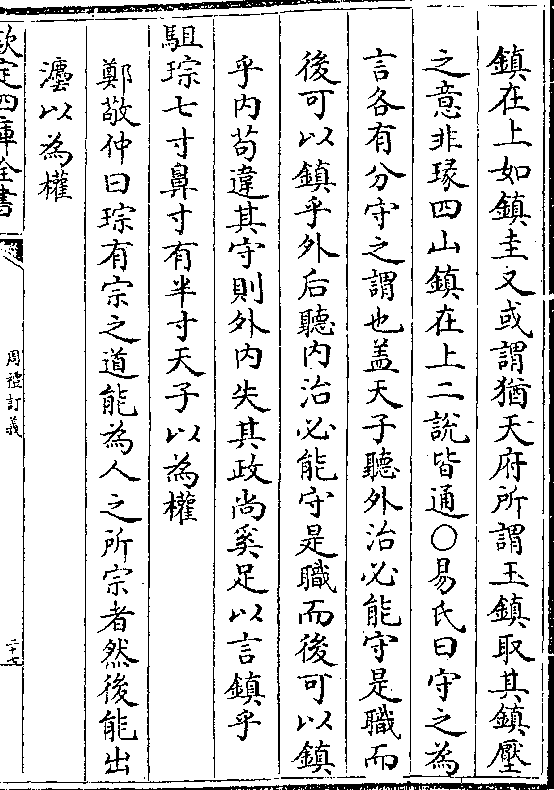 鎮在上如鎮圭又或謂猶天府所謂玉鎮取其鎮壓
之意非瑑四山鎮在上二說皆通○易氏曰守之為
言各有分守之謂也盖天子聽外治必能守是職而
後可以鎮乎外后聽内治必能守是職而後可以鎮
乎内苟違其守則外内失其政尚奚足以言鎮乎
駔琮七寸鼻寸有半寸天子以為權
鄭敬仲曰琮有宗之道能為人之所宗者然後能出
灋以為權
欽定四庫全書
周禮訂義
二十七